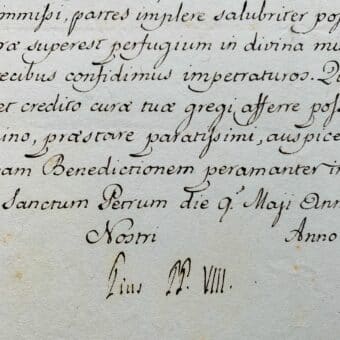 ommissi, partes implere salubriter pos
ræ superest perfugium in divina mu
ecibus confidimus impetraturos. Qu
et credito curæ tuæ gregi afferre poss
ino, præstare paratissimi, auspice
am Benedictionem peramanter im
Sanctum Petrum die 9.ª Maji Ann
Nostri Anno
Pius PP. VIII.